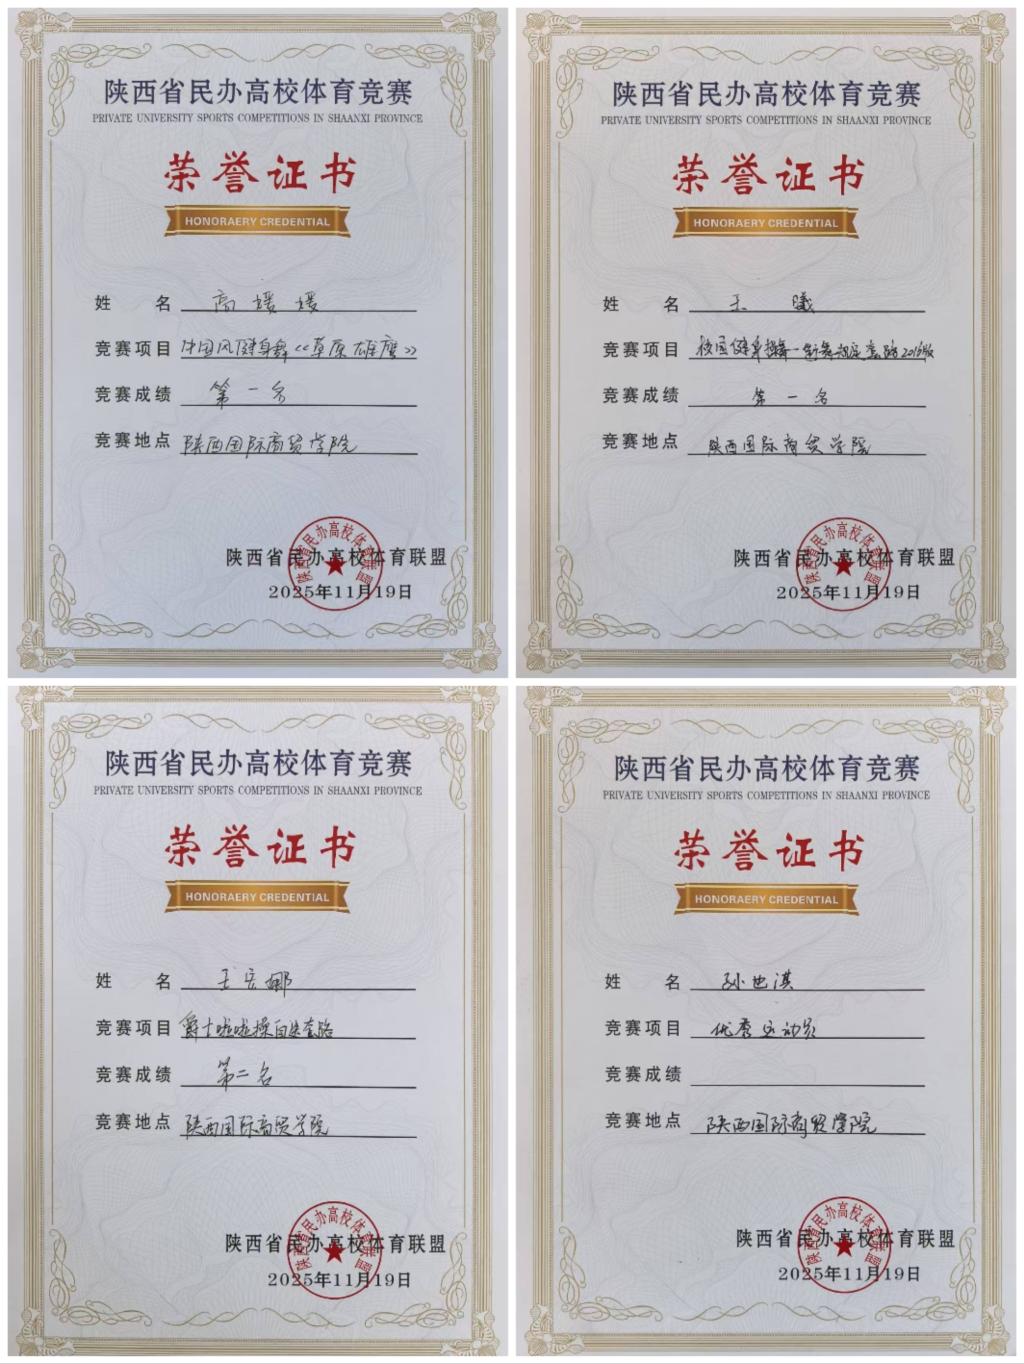 陕西省民办高校体育竞赛
PRIVATE UNIVERSITY SPORTS COMPETITIONS IN SHAANXI PROVINCE
荣誉证书
HONORAERY CREDENTIAL
姓名 高媛媛
竞赛项目 中国风健身舞《草原雄鹰》
竞赛成绩 第一名
竞赛地点 陕西国际商贸学院
陕西省民办高校体育联盟
陕西省民办高校体育联盟
2025年11月19日
陕西省民办高校体育竞赛
PRIVATE UNIVERSITY SPORTS COMPETITIONS IN SHAANXI PROVINCE
荣誉证书
HONORAERY CREDENTIAL
姓名 王曦
竞赛项目 校园健身操舞一街舞规定套路2016版
竞赛成绩 第一名
竞赛地点 陕西国际商贸学院
陕西省民办高校体育联盟
陕西省民办高校体育联盟
2025年11月19日
陕西省民办高校体育竞赛
PRIVATE UNIVERSITY SPORTS COMPETITIONS IN SHAANXI PROVINCE
荣誉证书
HONORAERY CREDENTIAL
姓名 王宏娜
竞赛项目 爵士啦啦操自选套路
竞赛成绩 第二名
竞赛地点 陕西国际商贸学院
陕西省民办高校体育联盟
陕西省民办高校体育联盟
2025年11月19日
陕西省民办高校体育竞赛
PRIVATE UNIVERSITY SPORTS COMPETITIONS IN SHAANXI PROVINCE
荣誉证书
HONORAERY CREDENTIAL
姓名 孙也淇
竞赛项目 优秀运动员
竞赛成绩
竞赛地点 陕西国际商贸学院
陕西省民办高校体育联盟
陕西省民办高校体育联盟
2025年11月19日